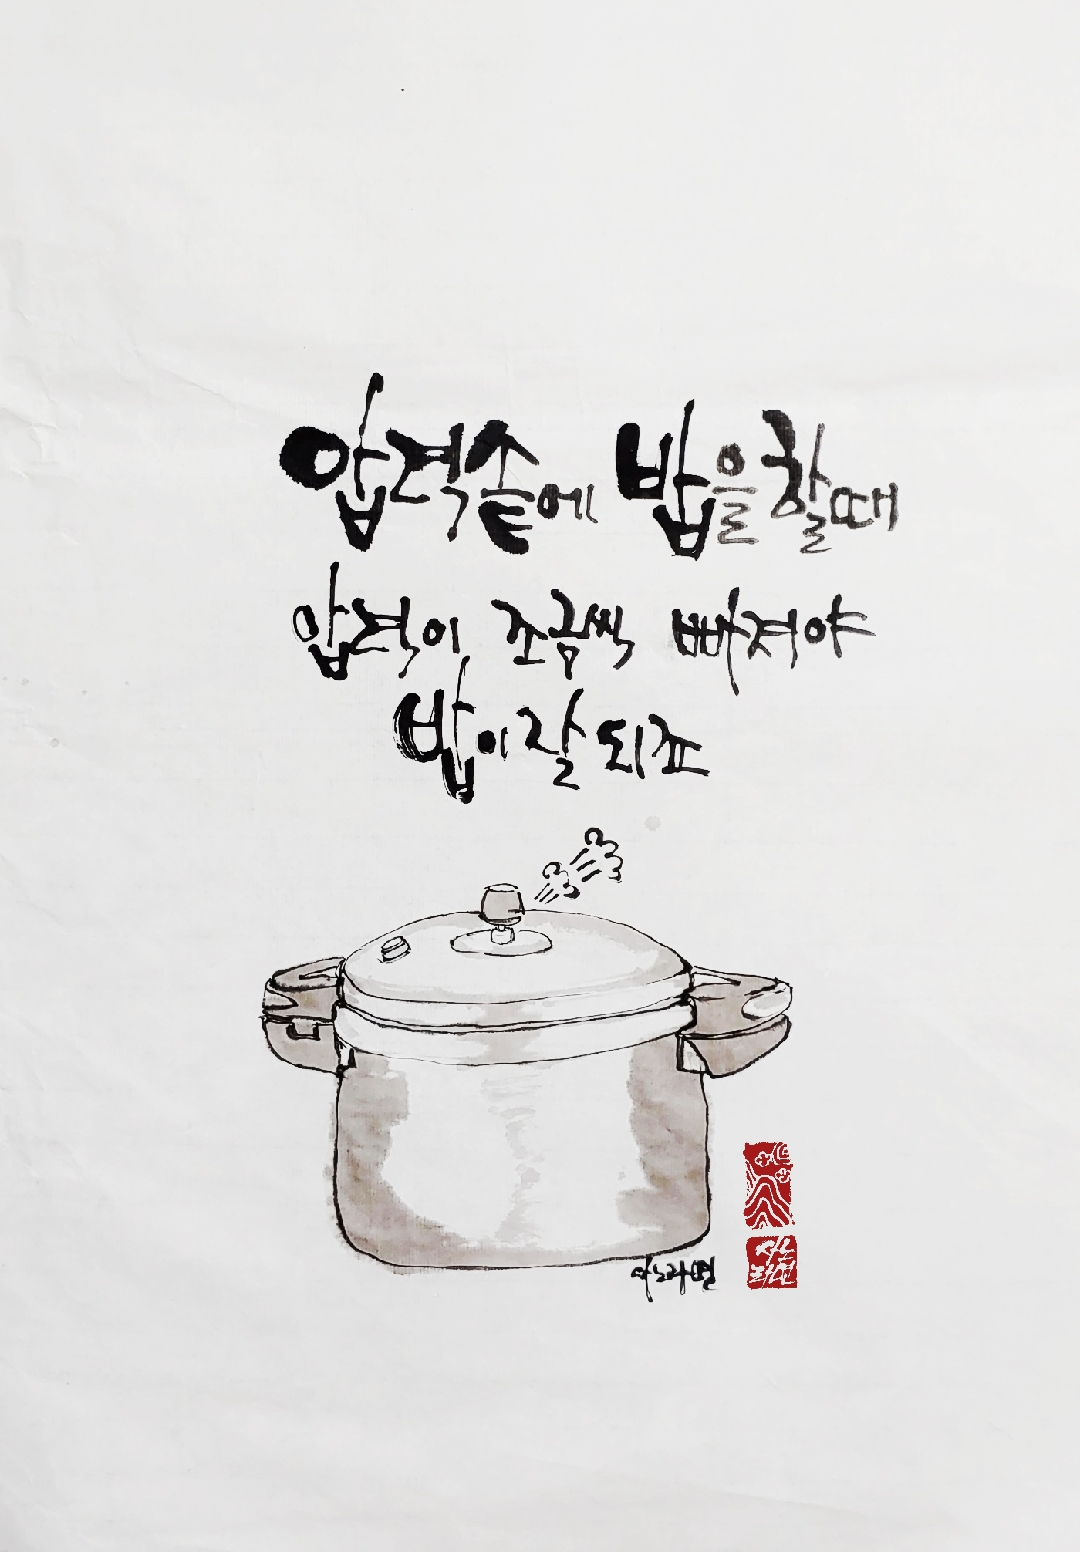 압력솥에 밥을 할 때
압력이 조금씩 빠져야
밥이 잘 되죠